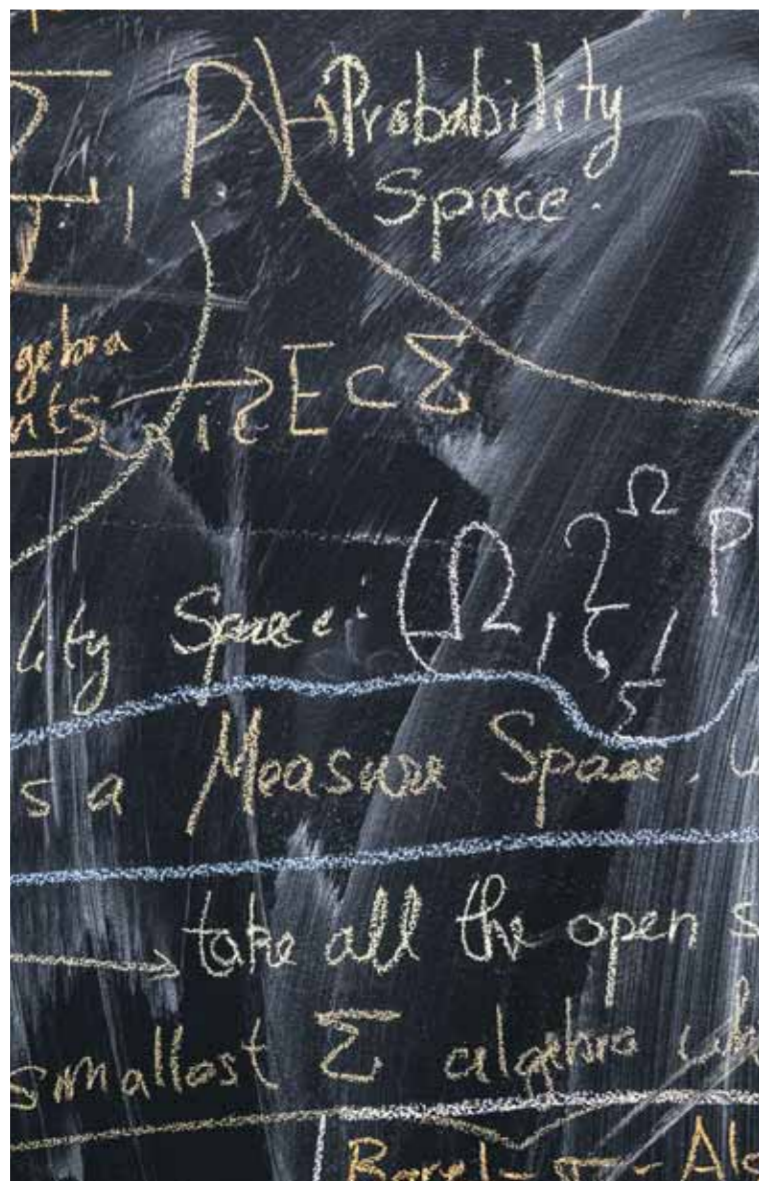 Σ, P) → Probability
Space.
gebra
nts → E ⊂ Σ
lity Space: (Ω, 2^Ω, P
Σ
s a Measure Space.
→ take all the open s
smallest Σ algebra
Borel-σ- Alg